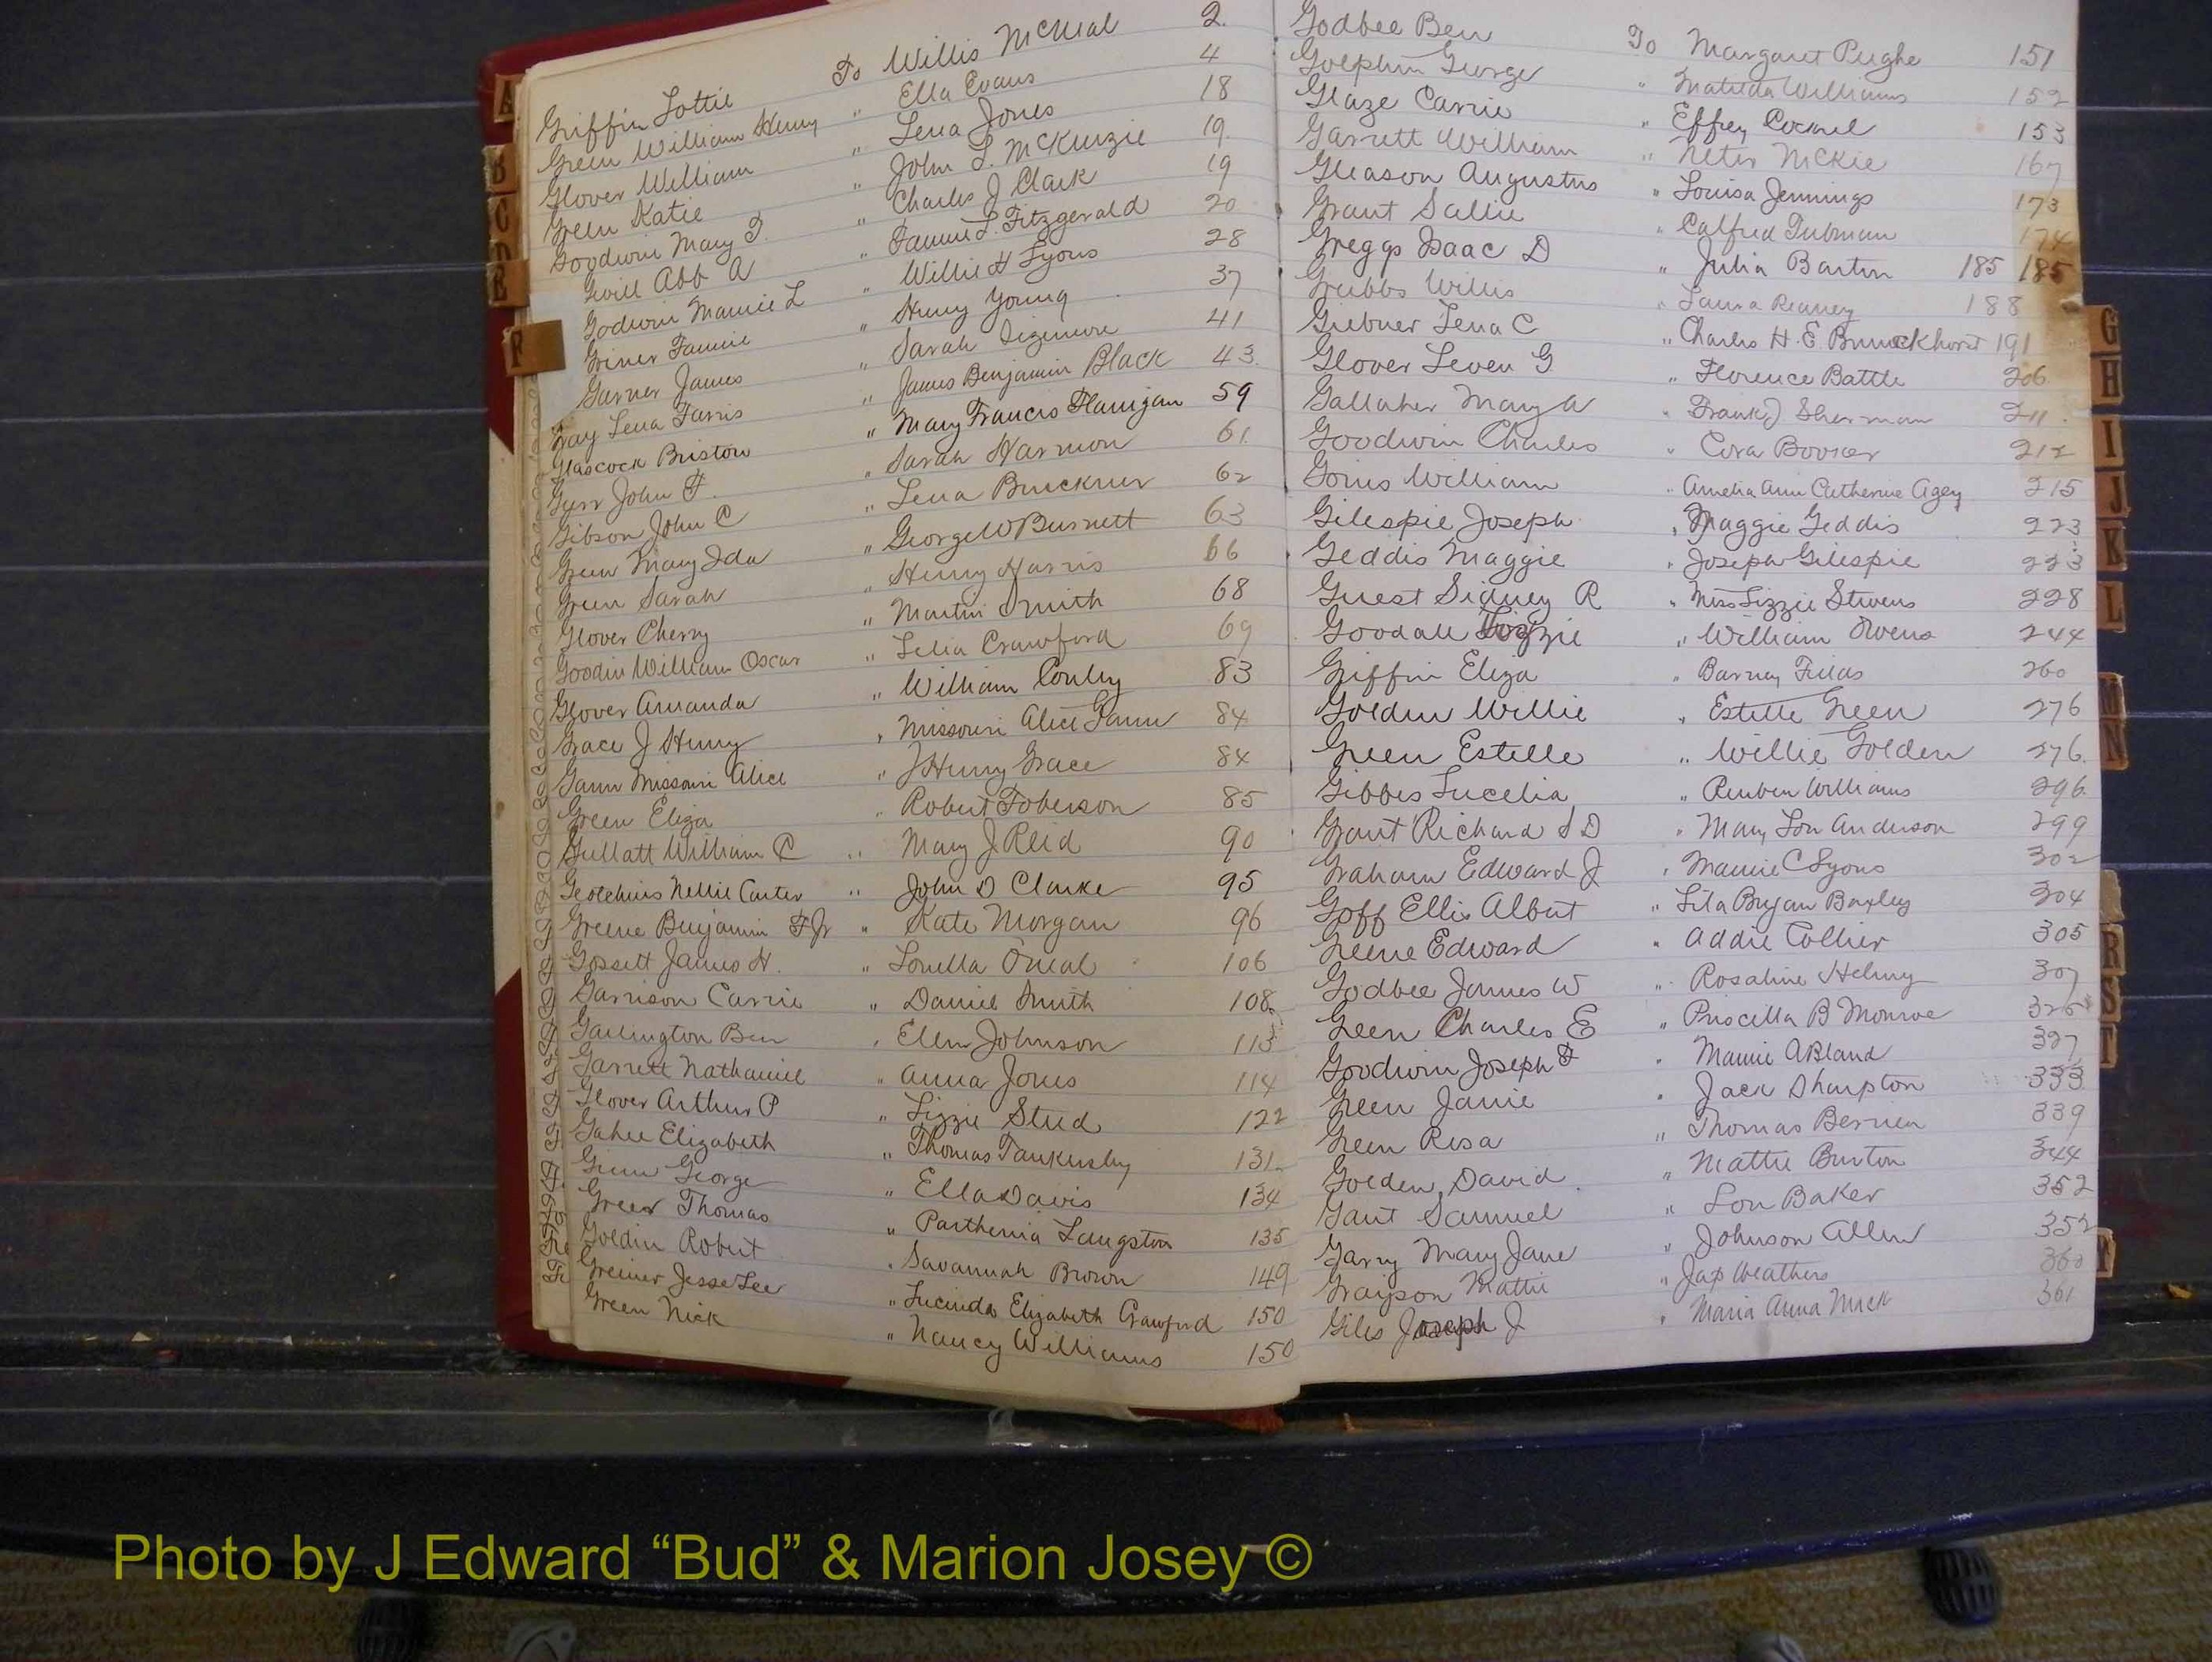 Griffin Lottie To Willis McNeal 2.
Green William Henry " Ella Evans 4
Glover William " Lena Jones 18
Green Katie " John L. McKenzie 19.
Goodwin Mary T. " Charles J Clark 19
Gwill Abb A " Fannie L. Fitzgerald 20
Godwin Mamie L " Willie H Lyons 28
Griner Fannie " Henry Young 37
Garner James " Sarah Sizemore 41
Gray Lena Farris " James Benjamin Black 43.
Glascock Briston " Mary Frances Flanigan 59
John F. " Sarah Harmon 61.
Gibson John C " Lena Bruckner 62
Green Mary Ida " George W Burnett 63
Green Sarah " Henry Harris 66
Glover Cherry " Martin Smith 68
Goodin William Oscar " Lelia Crawford 69
Glover Amanda " William Conley 83
Grace J Henry " Missouri Alice Gann 84
Gann Missouri Alice " J Henry Grace 84
Green Eliza " Robert Foberson 85
Gullatt William C " Mary J Reid 90
Nellie Carter " John D Clarke 95
Greene Benjamin F Jr " Kate Morgan 96
Gossett James H. " Louella Oneal 106
Garrison Carrie " Daniel Smith 108
Garlington Ben " Ellen Johnson 113
Garrett Nathaniel " Anna Jones 114
Glover Arthur P " Lizzie Sted 122
Gahee Elizabeth " Thomas Tankersley 131
George " Ella Davis 134
Greer Thomas " Parthenia Langston 135
Goldin Robert " Savannah Brown 149
Greiner Jesse Lee " Lucinda Elizabeth Crawford 150
Green Nick " Nancy Williams 150
Godbee Ben To Margaret Pughe 151
Golphin George " Matilda Williams 152
Glaze Carrie " Effrey 153
Garrett William " McKie 167
Gleason Augustus " Louisa Jennings 173
Grant Sallie " Calfred Tubman 174
Greggs Isaac D " Julia Barton 185 185
Grubbs Willis " Laura Reaney 188
Grebner Lena C " Charles H. E. Brunckhorst 191
Glover Leven G " Florence Battle 206
Gallaher Mary A " Frank J Sherman 211.
Goodwin Charles " Cora Booker 212
William " Amelia Ann Catherine Agey 215
Gilespie Joseph " Maggie Geddis 223
Geddis Maggie " Joseph Gilespie 223
Guest Sidney R " Miss Lizzie Stevens 228
Goodall Lizzie " William Owens 244
Griffin Eliza " Barney Fields 260
Golden Willie " Estelle Green 276
Green Estelle " Willie Golden 276.
Gibbes Lucelia " Reuben Williams 296.
Grant Richard S D " Mary Lou Anderson 299
Graham Edward J " Mamie C Lyons 302
Goff Ellis Albert " Lila Bryan Baxley 304
Greene Edward " Addie Collier 305
Godbee James W " Rosaline Helmy 307
Green Charles E " Priscilla B Monroe 325
Goodwin Joseph F " Mamie A Bland 327
Green Janie " Jack Sharpton 333
Green Rosa " Thomas Berrien 339
Golden David " Mattie Burton 344
Gant Samuel " Lou Baker 352
Garry Mary Jane " Johnson Allen 352
Grayson Mattie " Jap Weathers 360
Giles Joseph J " Maria Anna Mack 361
A
B
C
D
E
F
G
H
I
J
K
L
M
N
R
S
T
Y
Photo by J Edward “Bud” & Marion Josey ©